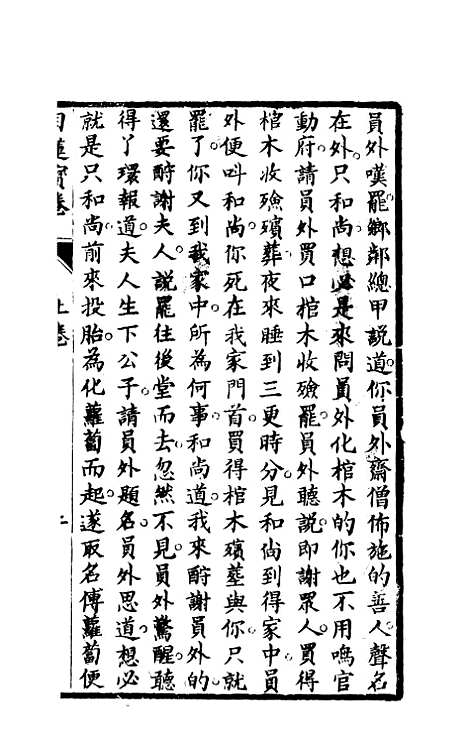 員外嘆罷鄉鄰總甲説道你員外齋僧佈施的善人聲名
在外只和尚想必是來問員外化棺木的你也不用鳴官
動府請員外買口棺木收殮罷員外聽説即謝眾人買得
棺木收殮殯葬夜來睡到三更時分見和尚到得家中員
外便呌和尚你死在我家門首買得棺木殯塟與你只就
罷了你又到我家中所為何事和尚道我來酧謝員外的
還要酧謝夫人説罷往後堂而去忽然不見員外驚醒聽
得丫環報道夫人生下公子請員外題名員外思道想必
就是只和尚前來投胎為化蘿蔔而起遂取名傅蘿蔔便
目蓮寶卷 上卷 二